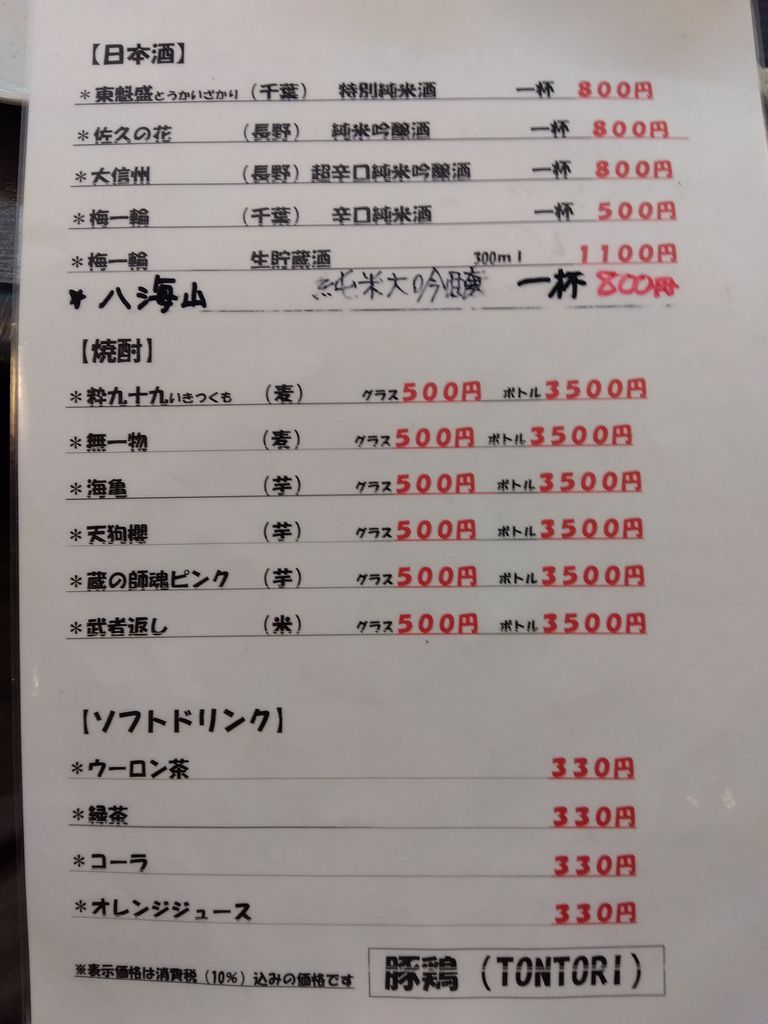 【日本酒】
＊東魁盛とうかいざかり（千葉） 特別純米酒 一杯 800円
＊佐久の花 （長野） 純米吟醸酒 一杯 800円
＊大信州 （長野）超辛口純米吟醸酒 一杯 800円
＊梅一輪 （千葉） 辛口純米酒 一杯 500円
＊梅一輪 生貯蔵酒 300ml 1100円
＊八海山 純米大吟醸 一杯 800円
【焼酎】
＊粋九十九いきつくも （麦） グラス500円 ボトル3500円
＊無一物 （麦） グラス500円 ボトル3500円
＊海亀 （芋） グラス500円 ボトル3500円
＊天狗櫻 （芋） グラス500円 ボトル3500円
＊蔵の師魂ピンク （芋） グラス500円 ボトル3500円
＊武者返し （米） グラス500円 ボトル3500円
【ソフトドリンク】
＊ウーロン茶 330円
＊緑茶 330円
＊コーラ 330円
＊オレンジジュース 330円
※表示価格は消費税（10％）込みの価格です
豚鶏（TONTORI）